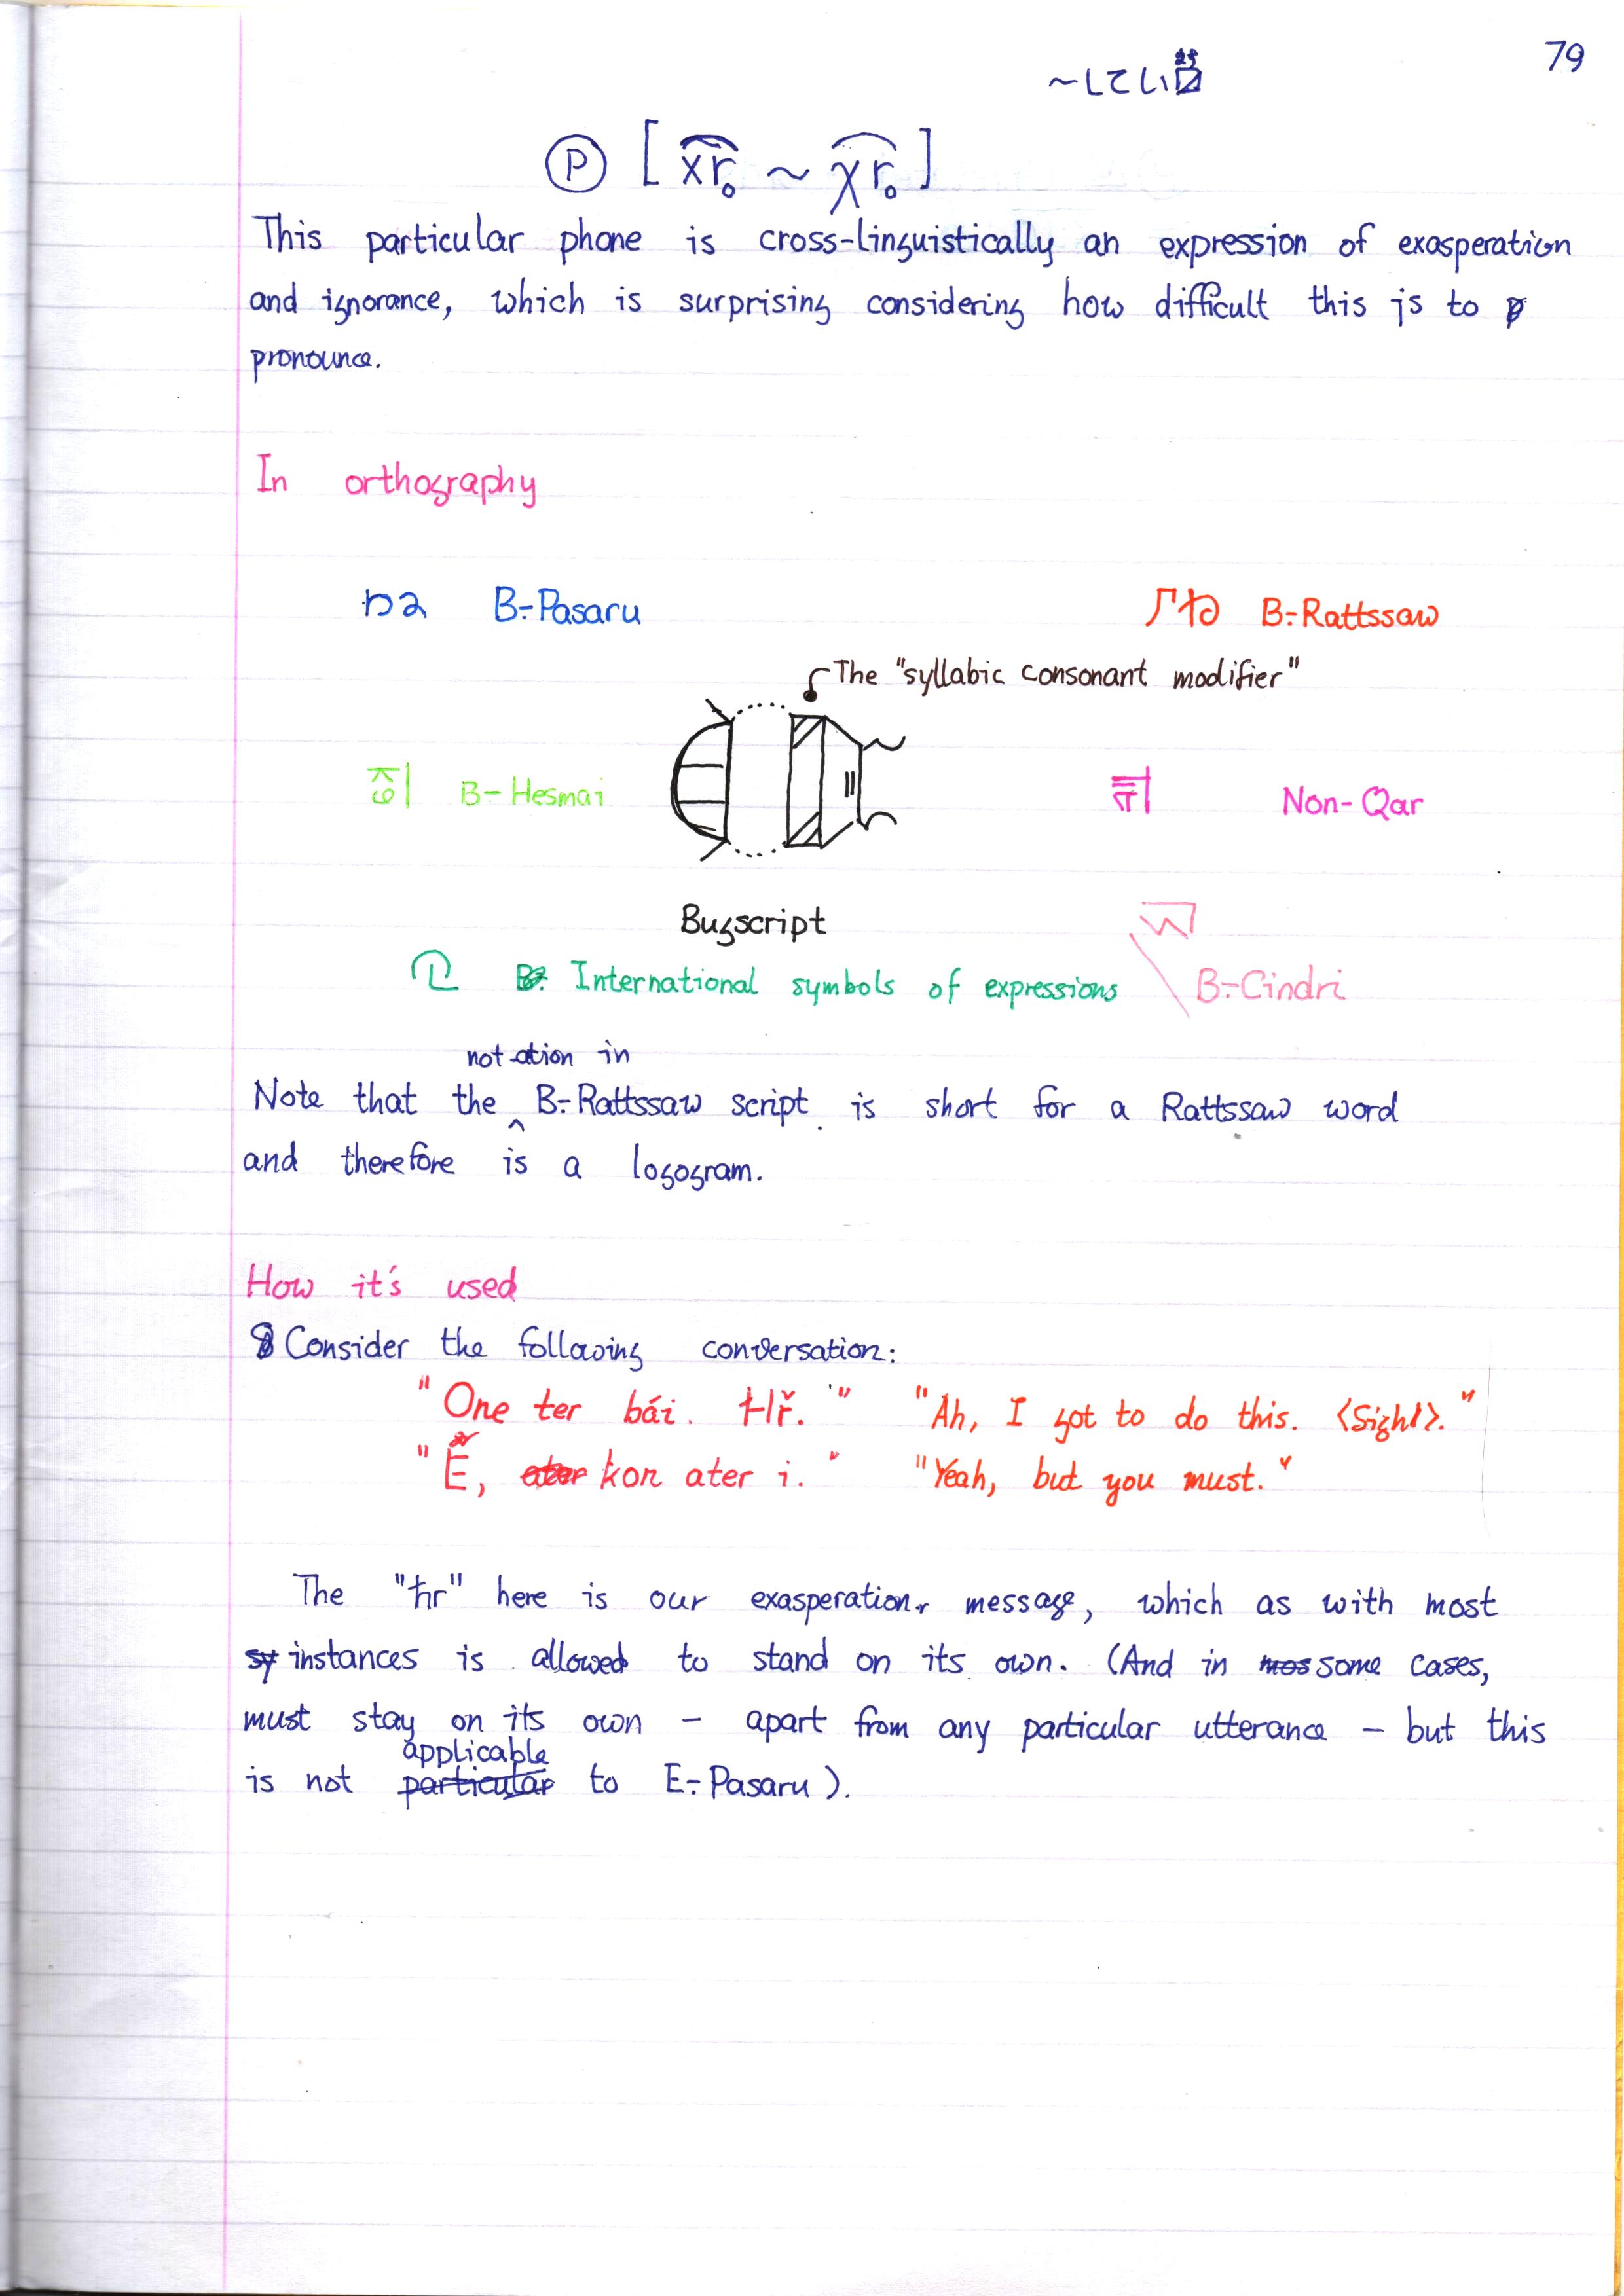 79
～してい
Ⓟ [x͡r̥ ~ χ͡r̥]
This particular phone is cross-linguistically an expression of exasperation
and ignorance, which is surprising considering how difficult this is to
pronounce.
In orthography
B-Pasaru
B-Rattssaw
The "syllabic consonant modifier"
B-Hesmai
Non-Qar
Bugscript
International symbols of expressions
B-Cindri
notation in
Note that the ‸ B-Rattssaw script is short for a Rattssaw word
and therefore is a logogram.
How it's used
Consider the following conversation:
"One ter bái. Ħř." "Ah, I got to do this. <Sigh!>."
"É, kon ater i." "Yeah, but you must."
The "ħr" here is our exasperation message, which as with most
instances is allowed to stand on its own. (And in some cases,
must stay on its own – apart from any particular utterance – but this
applicable
is not particular to E-Pasaru).